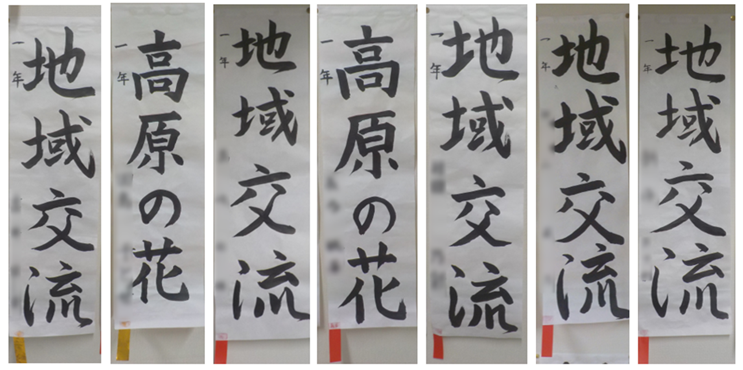 地域交流
一年
高原の花
一年
地域交流
一年
高原の花
一年
地域交流
一年
地域交流
一年
地域交流
一年